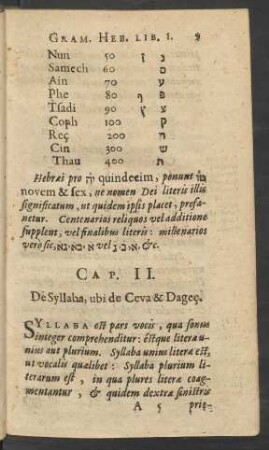 GRAM. HEB. LIB. I. 9
Nun 50 ן נ
Samech 60 ס
Ain 70 ע
Phe 80 ף פ
Tsadi 90 ץ צ
Coph 100 ק
Reç 200 ר
Cin 300 ש
Thau 400 ת
Hebræi pro יה quindecim, ponunt טו
novem & sex, ne nomen Dei literis illis
significatum, ut quidem ipsis placet, profa-
netur. Centenarios reliquos vel additione
supplent, vel finalibus literis: millenarios
vero sic, vel &c.
CAP. II.
De Syllaba, ubi de Ceva & Dageç.
SYLLABA est pars vocis, qua sonus
integer comprehenditur: estque literæ u-
nius aut plurium. Syllaba unius literæ est,
ut vocalis quælibet: Syllaba plurium li-
terarum est, in qua plures literæ coag-
mentantur, & quidem dextræ sinistræ
A 5 priù-